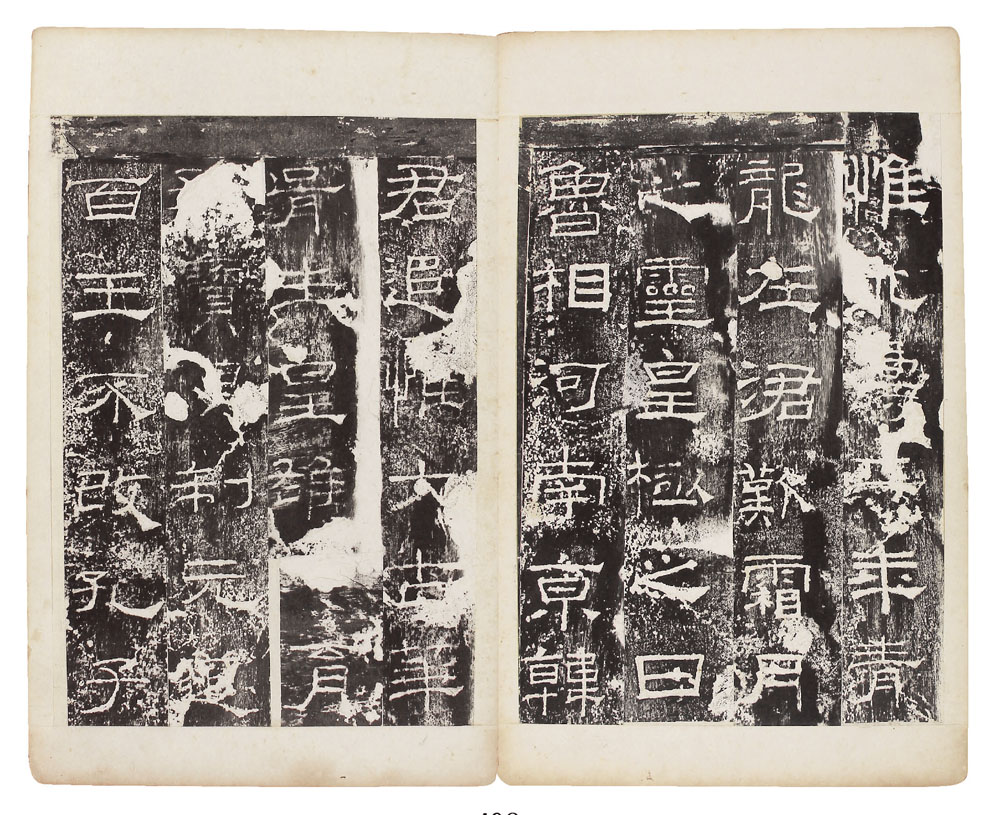 惟永壽二年青
龍在涒歎霜月
之靈皇極之日
魯相河南京韓
君追惟大古華
胥生皇雄育
寶俱制元道
百王不改孔子